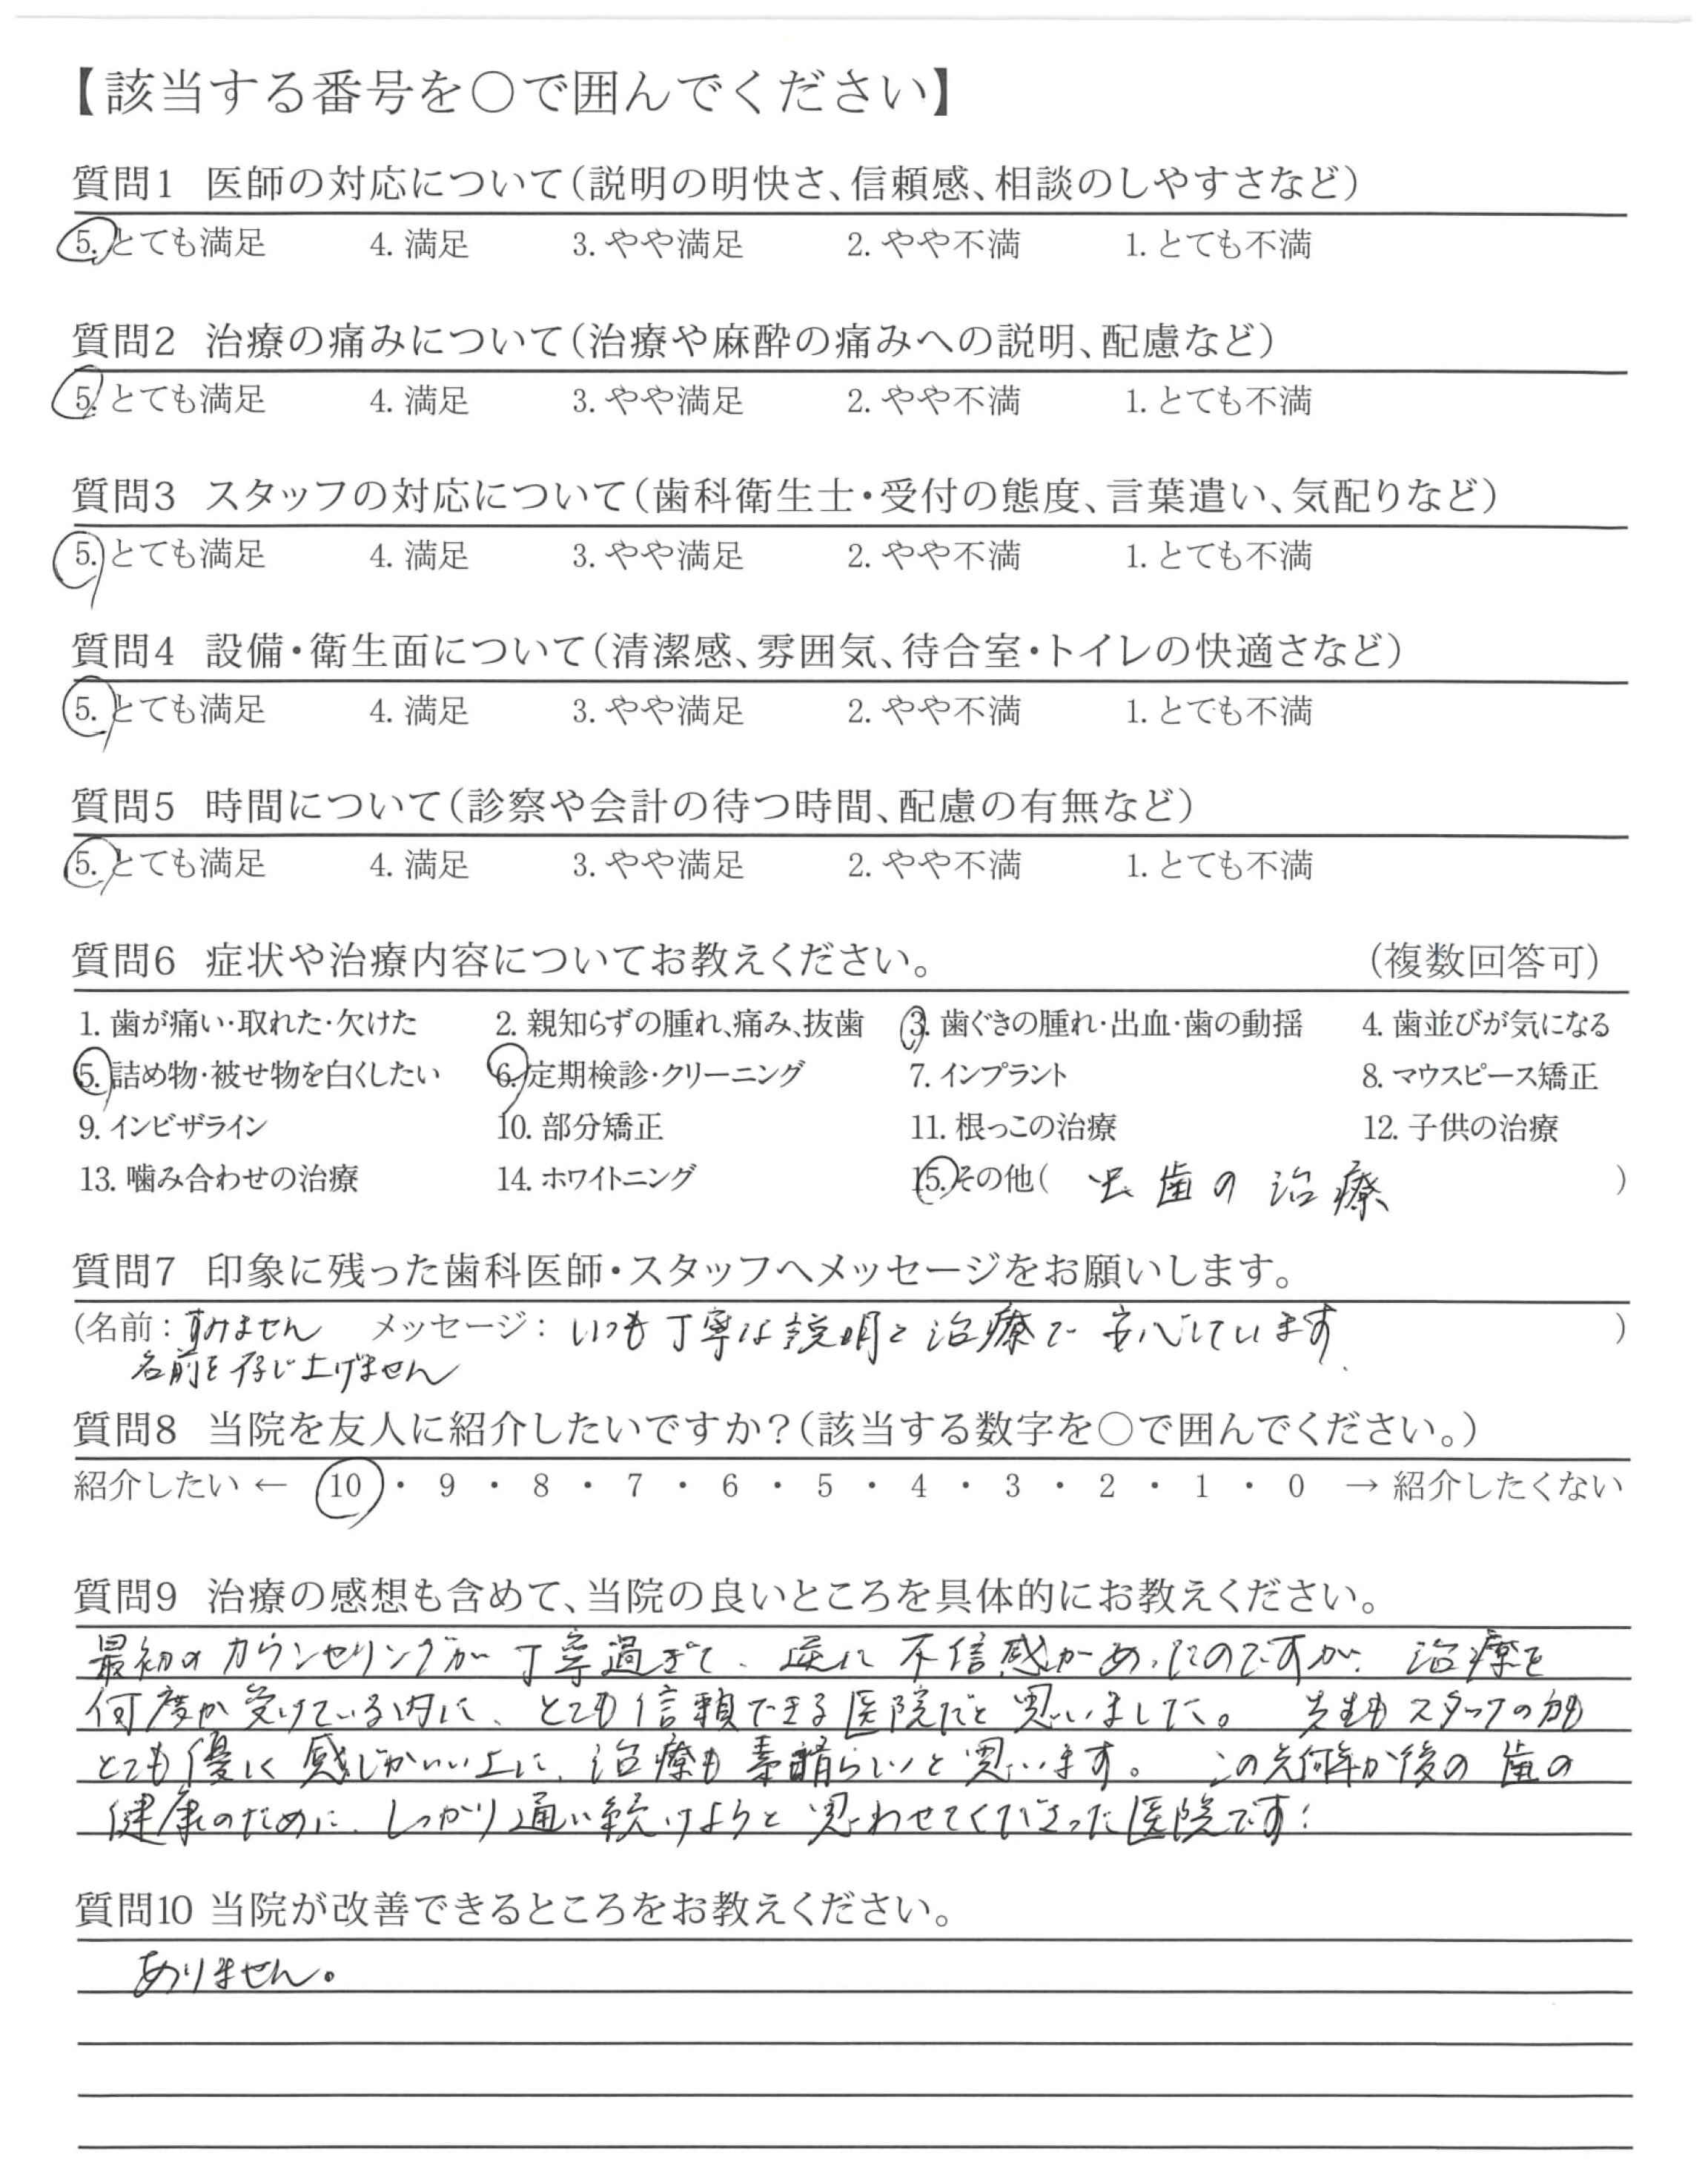 【該当する番号を○で囲んでください】
質問1 医師の対応について(説明の明快さ、信頼感、相談のしやすさなど)
5. とても満足 4. 満足 3. やや満足 2. やや不満 1. とても不満
質問2 治療の痛みについて(治療や麻酔の痛みへの説明、配慮など)
5. とても満足 4. 満足 3. やや満足 2. やや不満 1. とても不満
質問3 スタッフの対応について(歯科衛生士・受付の態度、言葉遣い、気配りなど)
5. とても満足 4. 満足 3. やや満足 2. やや不満 1. とても不満
質問4 設備・衛生面について(清潔感、雰囲気、待合室・トイレの快適さなど)
5. とても満足 4. 満足 3. やや満足 2. やや不満 1. とても不満
質問5 時間について(診察や会計の待つ時間、配慮の有無など)
5. とても満足 4. 満足 3. やや満足 2. やや不満 1. とても不満
質問6 症状や治療内容についてお教えください。 (複数回答可)
1. 歯が痛い・取れた・欠けた 2. 親知らずの腫れ、痛み、抜歯 3. 歯ぐきの腫れ・出血・歯の動揺 4. 歯並びが気になる
5. 詰め物・被せ物を白くしたい 6. 定期検診・クリーニング 7. インプラント 8. マウスピース矯正
9. インビザライン 10. 部分矯正 11. 根っこの治療 12. 子供の治療
13. 噛み合わせの治療 14. ホワイトニング 15. その他( 虫歯の治療 )
質問7 印象に残った歯科医師・スタッフへメッセージをお願いします。
(名前: すみません メッセージ: いつも丁寧な説明と治療で安心しています )
名前を存じ上げません
質問8 当院を友人に紹介したいですか?(該当する数字を○で囲んでください。)
紹介したい ← 10 ・ 9 ・ 8 ・ 7 ・ 6 ・ 5 ・ 4 ・ 3 ・ 2 ・ 1 ・ 0 → 紹介したくない
質問9 治療の感想も含めて、当院の良いところを具体的にお教えください。
最初のカウンセリングが丁寧過ぎて、逆に不信感があったのですが、治療を
何度か受けている内に、とても信頼できる医院だと思いました。先生もスタッフの方も
とても優しく感じがいい上に、治療も素晴らしいと思います。この先何年か後の歯の
健康のために、しっかり通い続けようと思わせてくださった医院です!
質問10 当院が改善できるところをお教えください。
ありません。